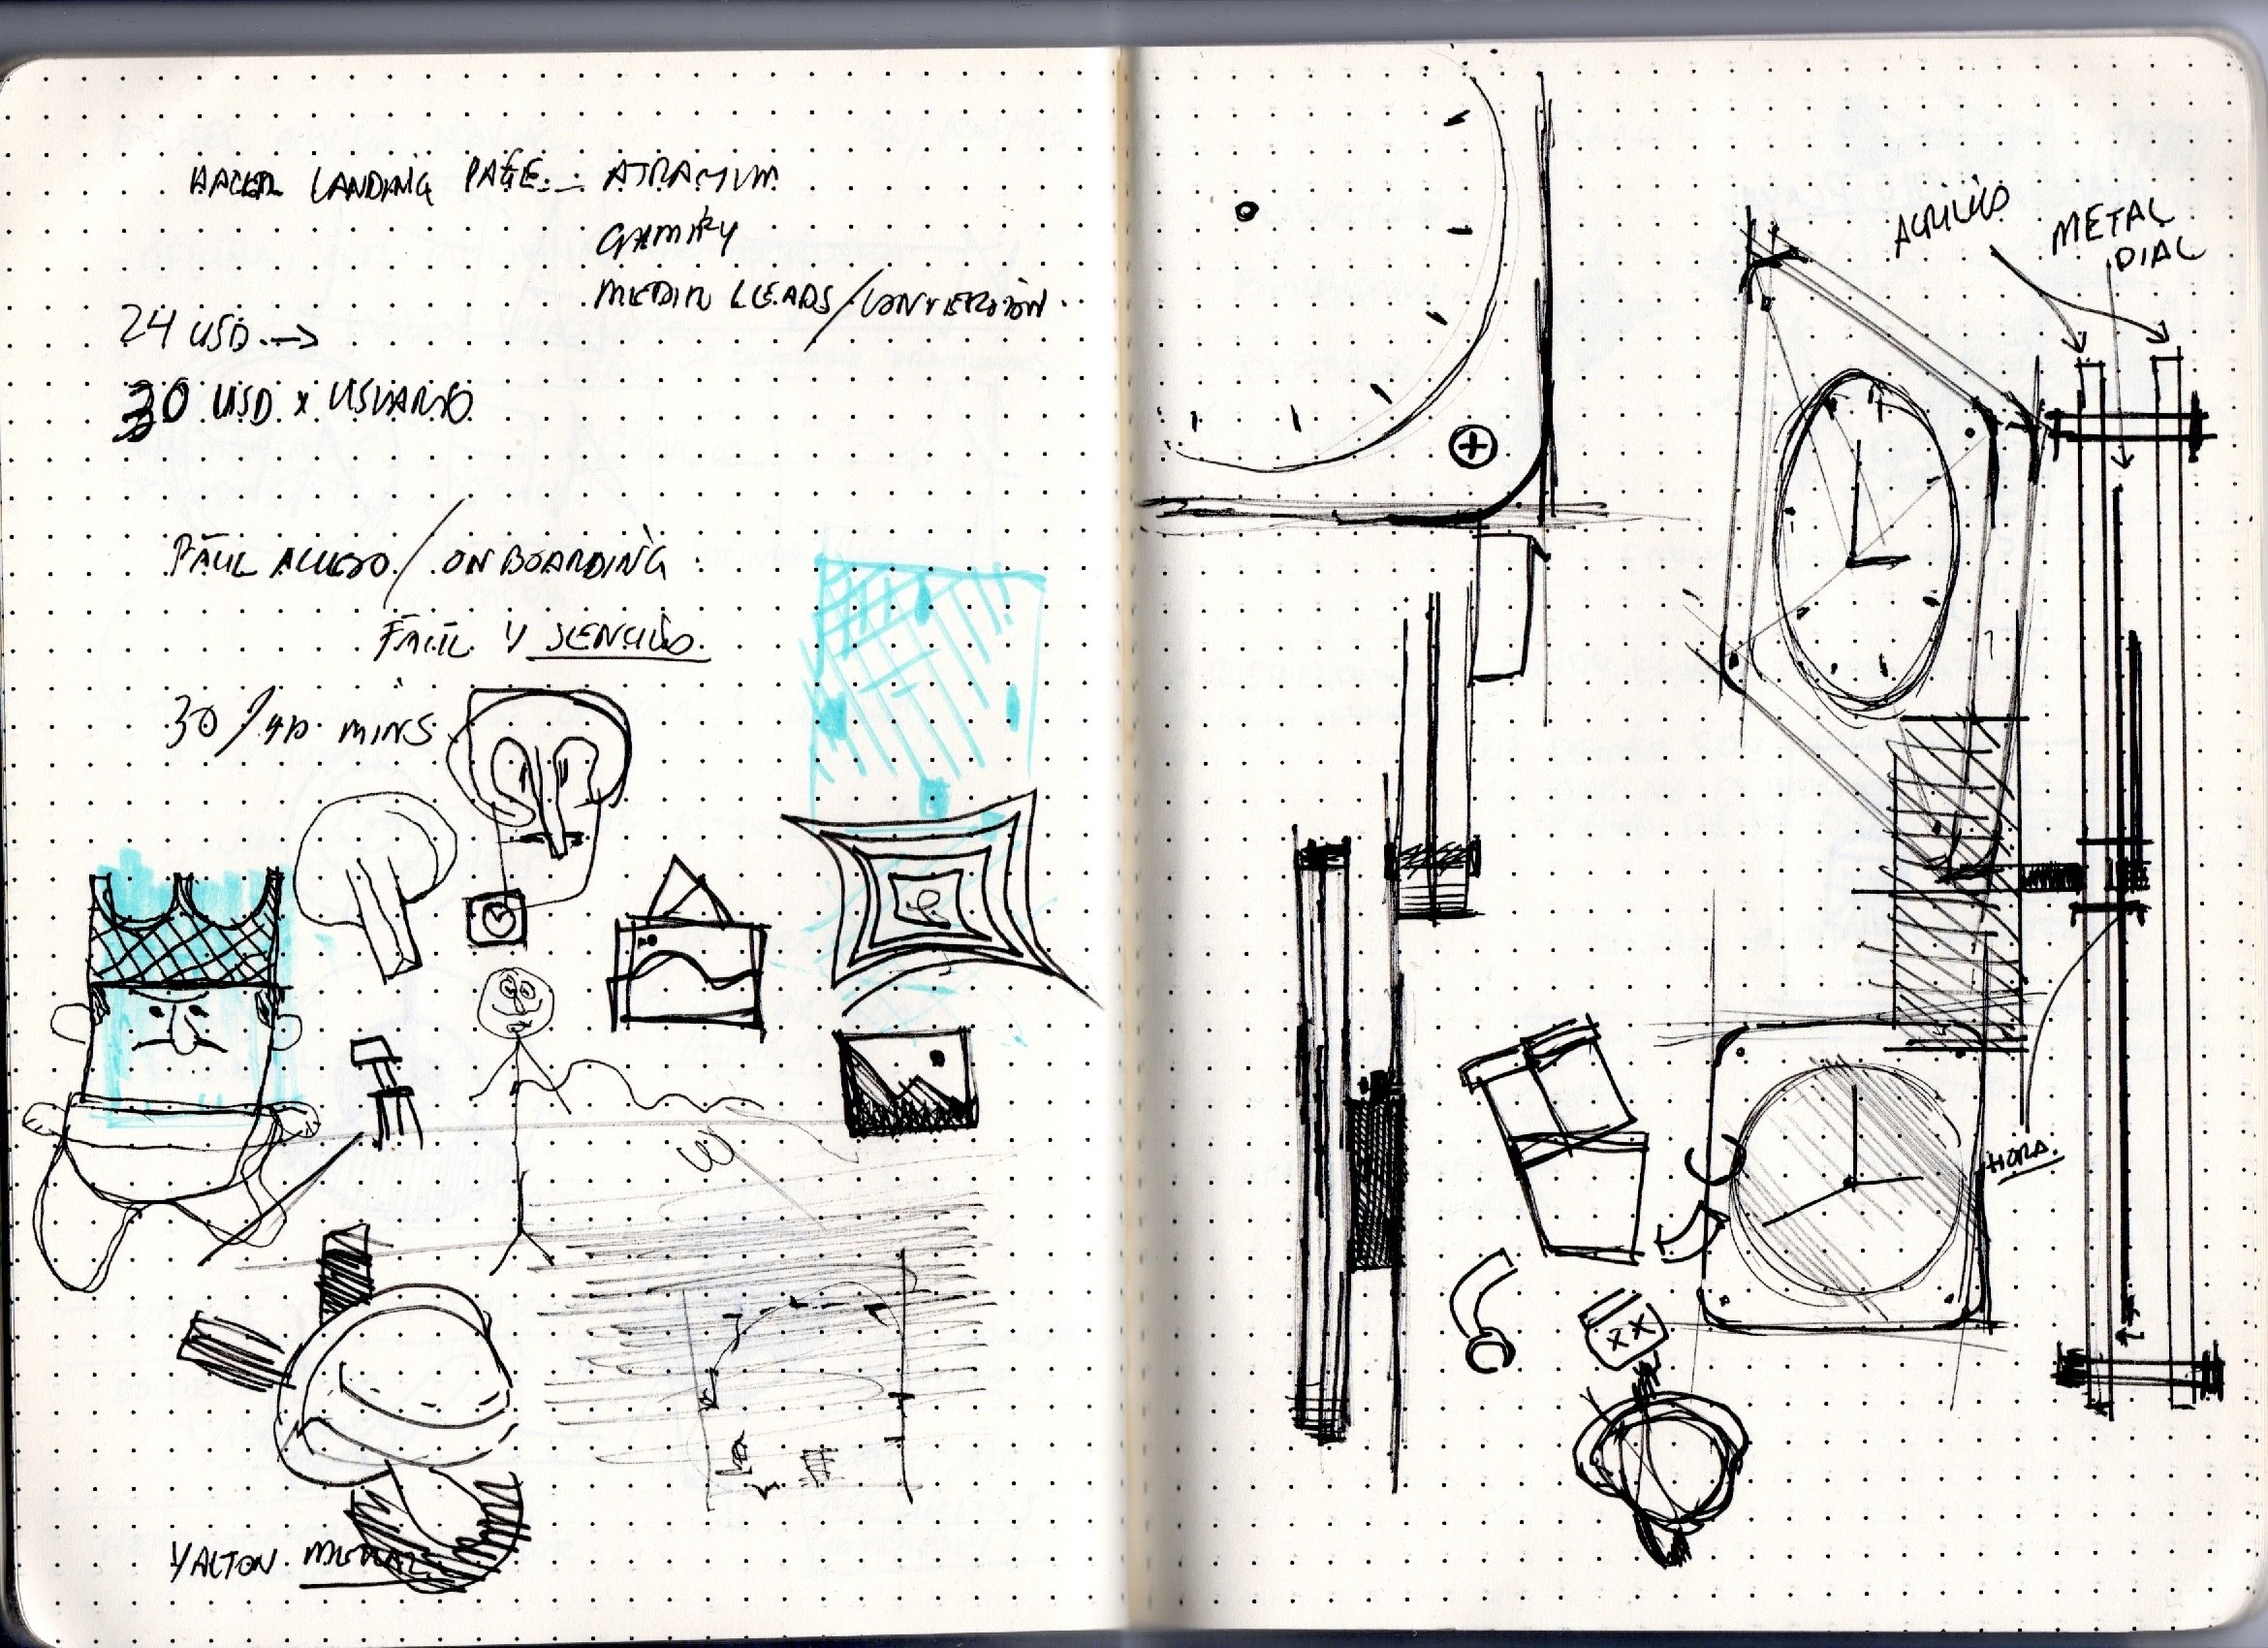 HACER LANDING PAGE. ATRAMUM
GAMIFY
MEDIR LEADS/CONVERSIÓN.
24 USD →
30 USD x USUARIO
FÁCIL ACCESO / ONBOARDING
FÁCIL Y SENCILLO.
30/40 MINS
YALTON
ACRILICO
METAL
DIAL
HORA.